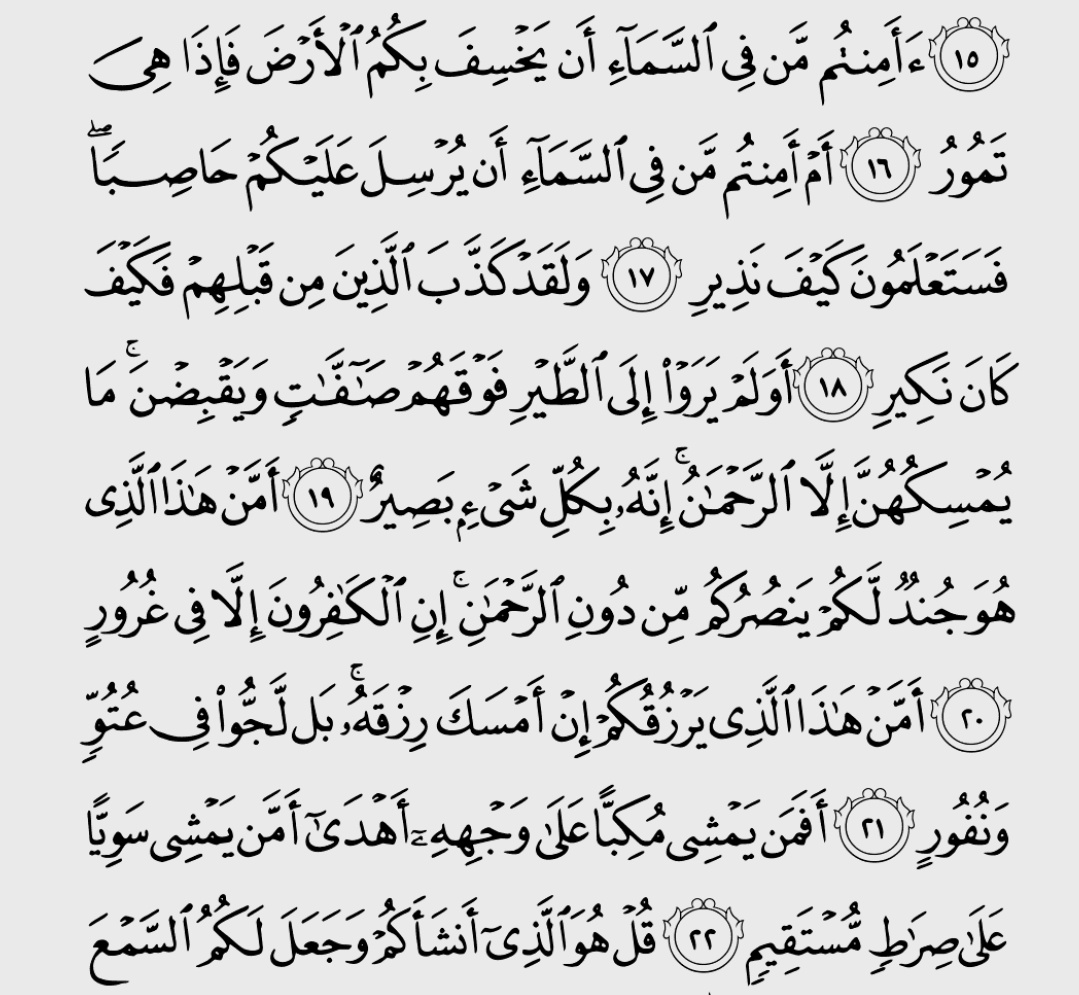 ١٥ ءَأَمِنتُم مَّن فِى ٱلسَّمَآءِ أَن يَخْسِفَ بِكُمُ ٱلْأَرْضَ فَإِذَا هِىَ
تَمُورُ ١٦ أَمْ أَمِنتُم مَّن فِى ٱلسَّمَآءِ أَن يُرْسِلَ عَلَيْكُمْ حَاصِبًاۖ
فَسَتَعْلَمُونَ كَيْفَ نَذِيرِ ١٧ وَلَقَدْ كَذَّبَ ٱلَّذِينَ مِن قَبْلِهِمْ فَكَيْفَ
كَانَ نَكِيرِ ١٨ أَوَلَمْ يَرَوْا۟ إِلَى ٱلطَّيْرِ فَوْقَهُمْ صَـٰٓفَّـٰتٍ وَيَقْبِضْنَۚ مَا
يُمْسِكُهُنَّ إِلَّا ٱلرَّحْمَـٰنُۚ إِنَّهُۥ بِكُلِّ شَىْءٍۭ بَصِيرٌ ١٩ أَمَّنْ هَـٰذَا ٱلَّذِى
هُوَ جُندٌ لَّكُمْ يَنصُرُكُم مِّن دُونِ ٱلرَّحْمَـٰنِۚ إِنِ ٱلْكَـٰفِرُونَ إِلَّا فِى غُرُورٍ
٢٠ أَمَّنْ هَـٰذَا ٱلَّذِى يَرْزُقُكُمْ إِنْ أَمْسَكَ رِزْقَهُۥۚ بَل لَّجُّوا۟ فِى عُتُوٍّ
وَنُفُورٍ ٢١ أَفَمَن يَمْشِى مُكِبًّا عَلَىٰ وَجْهِهِۦٓ أَهْدَىٰٓ أَمَّن يَمْشِى سَوِيًّا
عَلَىٰ صِرَٰطٍ مُّسْتَقِيمٍ ٢٢ قُلْ هُوَ ٱلَّذِىٓ أَنشَأَكُمْ وَجَعَلَ لَكُمُ ٱلسَّمْعَ